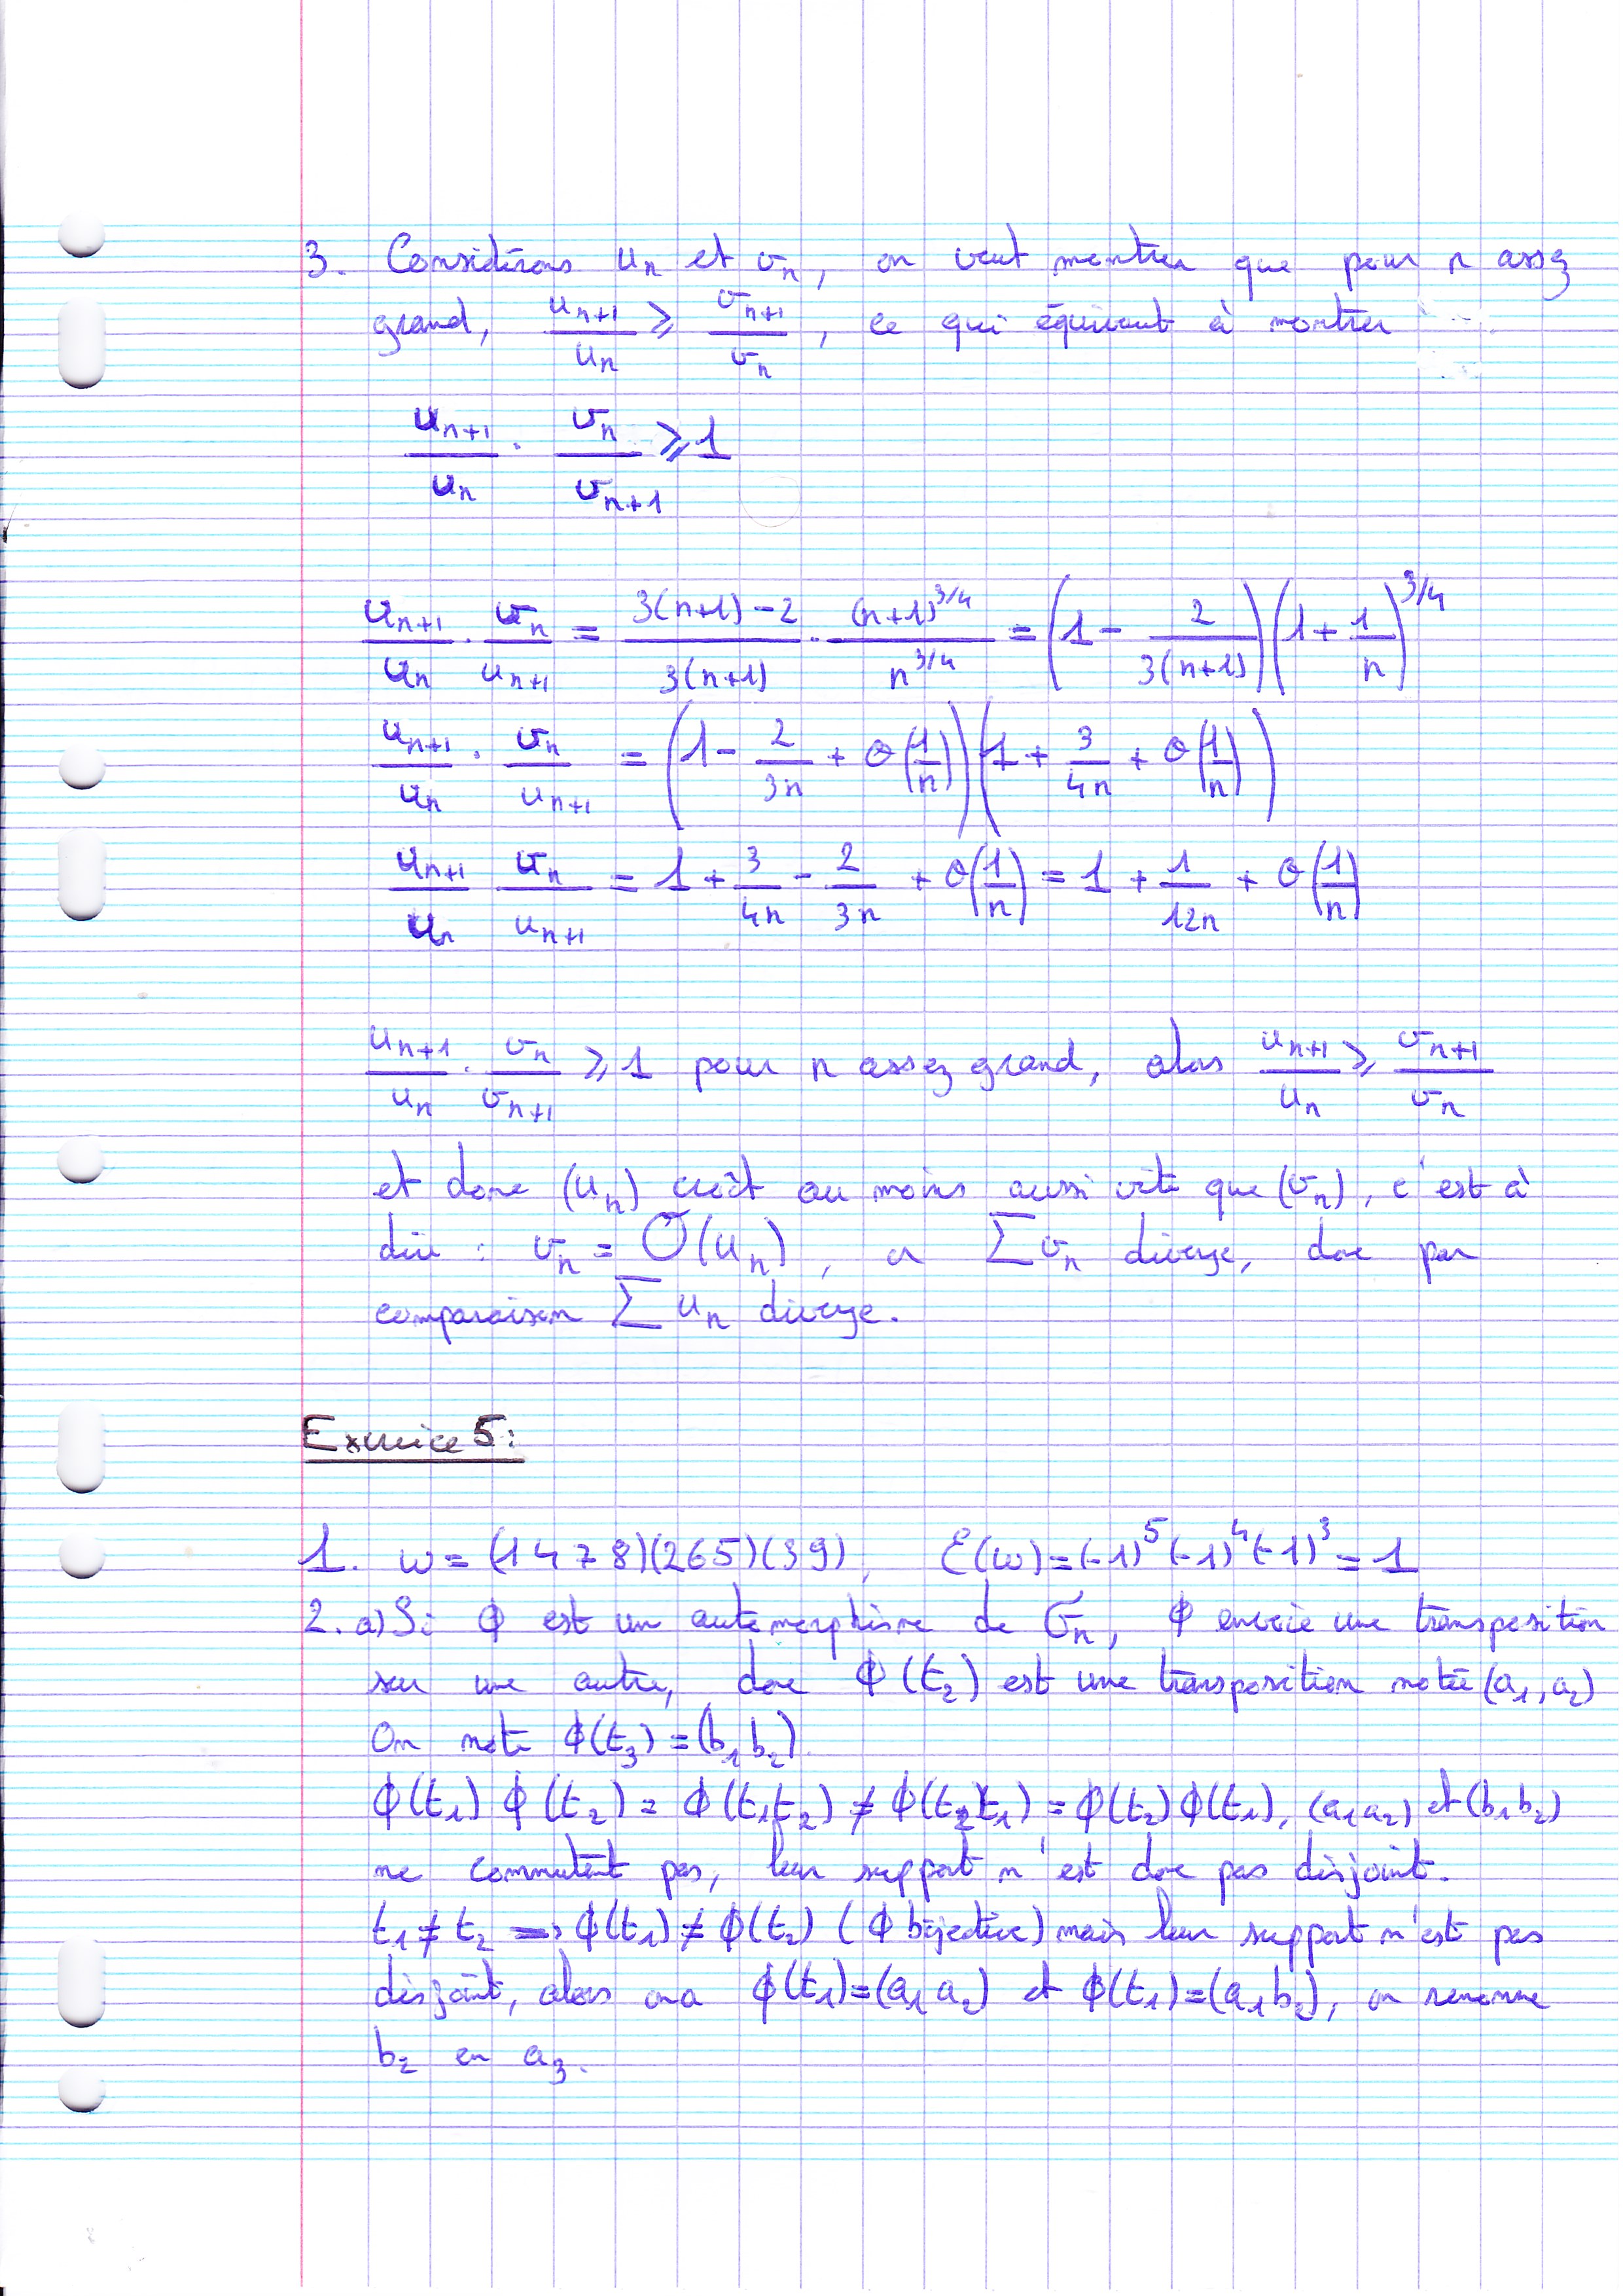 3. Considérons uₙ et vₙ, on veut montrer que pour n assez
grand, uₙ₊₁/uₙ ⩾ vₙ₊₁/vₙ, ce qui équivaut à montrer
uₙ₊₁/uₙ · vₙ/vₙ₊₁ ⩾ 1
uₙ₊₁/uₙ · vₙ/uₙ₊₁ = (3(n+1)-2)/(3(n+1)) · (n+1)^(3/4)/n^(3/4) = (1 - 2/(3(n+1)))(1 + 1/n)^(3/4)
uₙ₊₁/uₙ · vₙ/uₙ₊₁ = (1 - 2/(3n) + o(1/n))(1 + 3/(4n) + o(1/n))
uₙ₊₁/uₙ vₙ/uₙ₊₁ = 1 + 3/(4n) - 2/(3n) + o(1/n) = 1 + 1/(12n) + o(1/n)
uₙ₊₁/uₙ · vₙ/vₙ₊₁ ⩾ 1 pour n assez grand, alors uₙ₊₁/uₙ ⩾ vₙ₊₁/vₙ
et donc (uₙ) croît au moins aussi vite que (vₙ), c'est à
dire : vₙ = O(uₙ), or ∑vₙ diverge, donc par
comparaison ∑uₙ diverge.
Exercice 5:
1. ω = (1 4 7 8)(2 6 5)(3 9), ε(ω) = (-1)⁵(-1)⁴(-1)³ = 1
2. a) Si ϕ est un automorphisme de σₙ, ϕ envoie une transposition
sur une autre, donc ϕ(t₂) est une transposition notée (a₁, a₂)
On note ϕ(t₃) = (b₁ b₂)
ϕ(t₁) ϕ(t₂) = ϕ(t₁t₂) ≠ ϕ(t₂t₁) = ϕ(t₂) ϕ(t₁), (a₁ a₂) et (b₁ b₂)
ne commutent pas, leur support n'est donc pas disjoint.
t₁ ≠ t₂ => ϕ(t₁) ≠ ϕ(t₂) (ϕ bijective) mais leur support n'est pas
disjoint, alors on a ϕ(t₁) = (a₁ a₂) et ϕ(t₁) = (a₁ b₂), on renomme
b₂ en a₃.